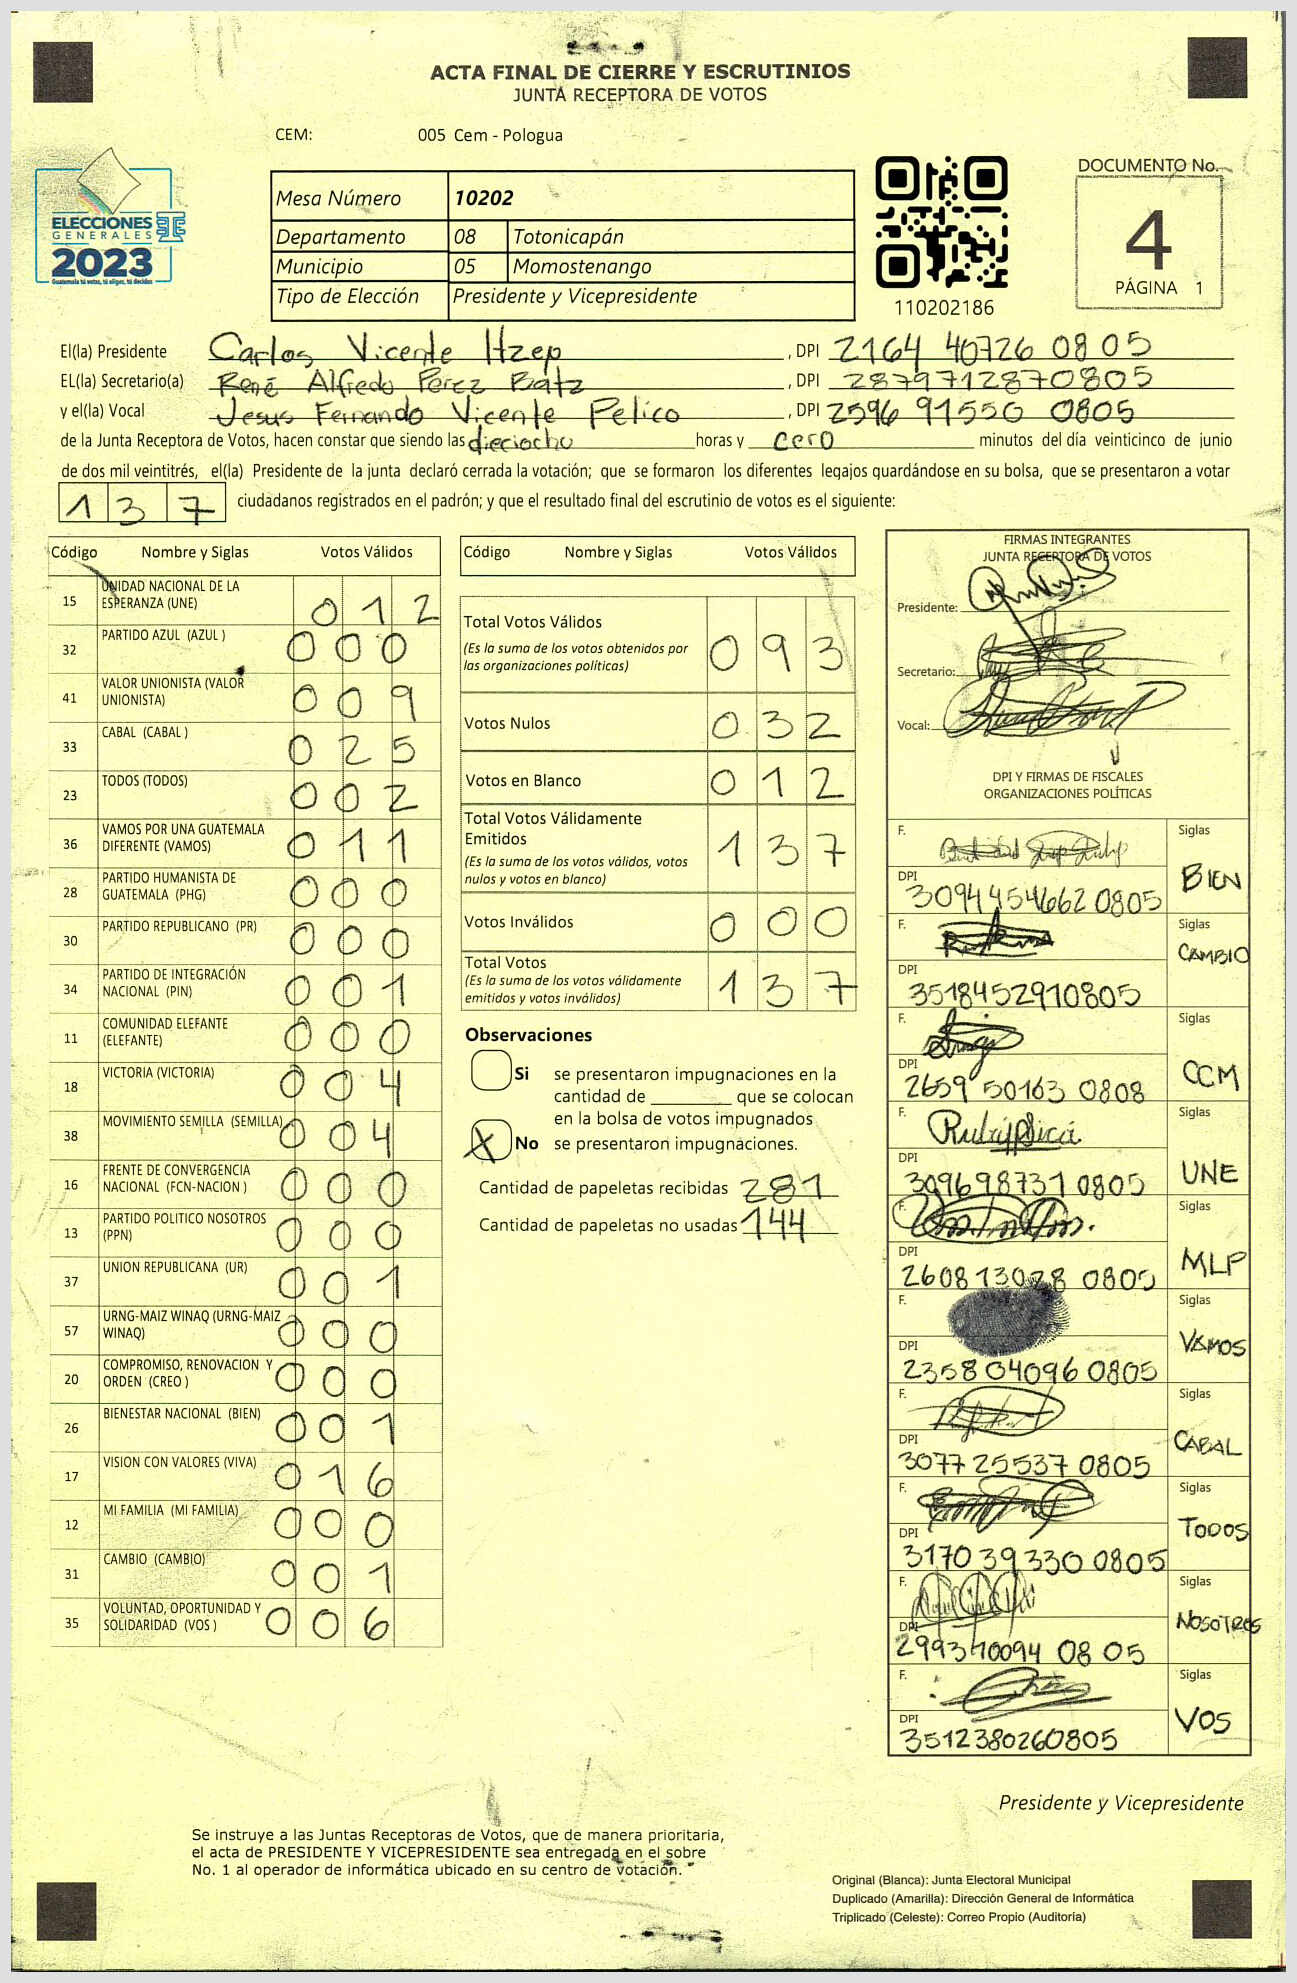 ACTA FINAL DE CIERRE Y ESCRUTINIOS
JUNTA RECEPTORA DE VOTOS
CEM: 005 Cem - Pologua
ELECCIONES
GENERALES
2023
Guatemala tú votas, tú eliges, tú decides
Mesa Número 10202
Departamento 08 Totonicapán
Municipio 05 Momostenango
Tipo de Elección Presidente y Vicepresidente
110202186
DOCUMENTO No.
4
PÁGINA 1
El(la) Presidente Carlos Vicente Itzep , DPI 2164 40726 0805
EL(la) Secretario(a) René Alfredo Perez Batz , DPI 2879712870805
y el(la) Vocal Jesus Fernando Vicente Pelico , DPI 2596 91550 0805
de la Junta Receptora de Votos, hacen constar que siendo las dieciocho horas y cero minutos del día veinticinco de junio
de dos mil veintitrés, el(la) Presidente de la junta declaró cerrada la votación; que se formaron los diferentes legajos guardándose en su bolsa, que se presentaron a votar
137 ciudadanos registrados en el padrón; y que el resultado final del escrutinio de votos es el siguiente:
Código Nombre y Siglas Votos Válidos
15 UNIDAD NACIONAL DE LA
ESPERANZA (UNE) 012
32 PARTIDO AZUL (AZUL ) 000
41 VALOR UNIONISTA (VALOR
UNIONISTA) 009
33 CABAL (CABAL ) 025
23 TODOS (TODOS) 002
36 VAMOS POR UNA GUATEMALA
DIFERENTE (VAMOS) 011
28 PARTIDO HUMANISTA DE
GUATEMALA (PHG) 000
30 PARTIDO REPUBLICANO (PR) 000
34 PARTIDO DE INTEGRACIÓN
NACIONAL (PIN) 001
11 COMUNIDAD ELEFANTE
(ELEFANTE) 000
18 VICTORIA (VICTORIA) 004
38 MOVIMIENTO SEMILLA (SEMILLA) 004
16 FRENTE DE CONVERGENCIA
NACIONAL (FCN-NACION ) 000
13 PARTIDO POLITICO NOSOTROS
(PPN) 000
37 UNION REPUBLICANA (UR) 001
57 URNG-MAIZ WINAQ (URNG-MAIZ
WINAQ) 000
20 COMPROMISO, RENOVACION Y
ORDEN (CREO ) 000
26 BIENESTAR NACIONAL (BIEN) 001
17 VISION CON VALORES (VIVA) 016
12 MI FAMILIA (MI FAMILIA) 000
31 CAMBIO (CAMBIO) 001
35 VOLUNTAD, OPORTUNIDAD Y
SOLIDARIDAD (VOS ) 006
Código Nombre y Siglas Votos Válidos
Total Votos Válidos 093
(Es la suma de los votos obtenidos por
las organizaciones políticas)
Votos Nulos 032
Votos en Blanco 012
Total Votos Válidamente
Emitidos 137
(Es la suma de los votos válidos, votos
nulos y votos en blanco)
Votos Inválidos 000
Total Votos 137
(Es la suma de los votos válidamente
emitidos y votos inválidos)
Observaciones
Si se presentaron impugnaciones en la
cantidad de ________ que se colocan
en la bolsa de votos impugnados
X No se presentaron impugnaciones.
Cantidad de papeletas recibidas 281
Cantidad de papeletas no usadas 144
FIRMAS INTEGRANTES
JUNTA RECEPTORA DE VOTOS
Presidente:
Secretario:
Vocal:
DPI Y FIRMAS DE FISCALES
ORGANIZACIONES POLÍTICAS
F. Siglas
BIEN
DPI 3094454662 0805
F. Siglas
CAMBIO
DPI 3518452910805
F. Siglas
CCM
DPI 2659 50163 0808
F. Siglas
UNE
DPI 309698731 0805
F. Siglas
MLP
DPI 260813028 0805
F. Siglas
VAMOS
DPI 235804096 0805
F. Siglas
CABAL
DPI 3077 25537 0805
F. Siglas
TODOS
DPI 3170 39330 0805
F. Siglas
NOSOTROS
DPI 299370094 0805
F. Siglas
VOS
DPI 3512380260805
Presidente y Vicepresidente
Se instruye a las Juntas Receptoras de Votos, que de manera prioritaria,
el acta de PRESIDENTE Y VICEPRESIDENTE sea entregada en el sobre
No. 1 al operador de informática ubicado en su centro de votación.
Original (Blanca): Junta Electoral Municipal
Duplicado (Amarilla): Dirección General de Informática
Triplicado (Celeste): Correo Propio (Auditoría)